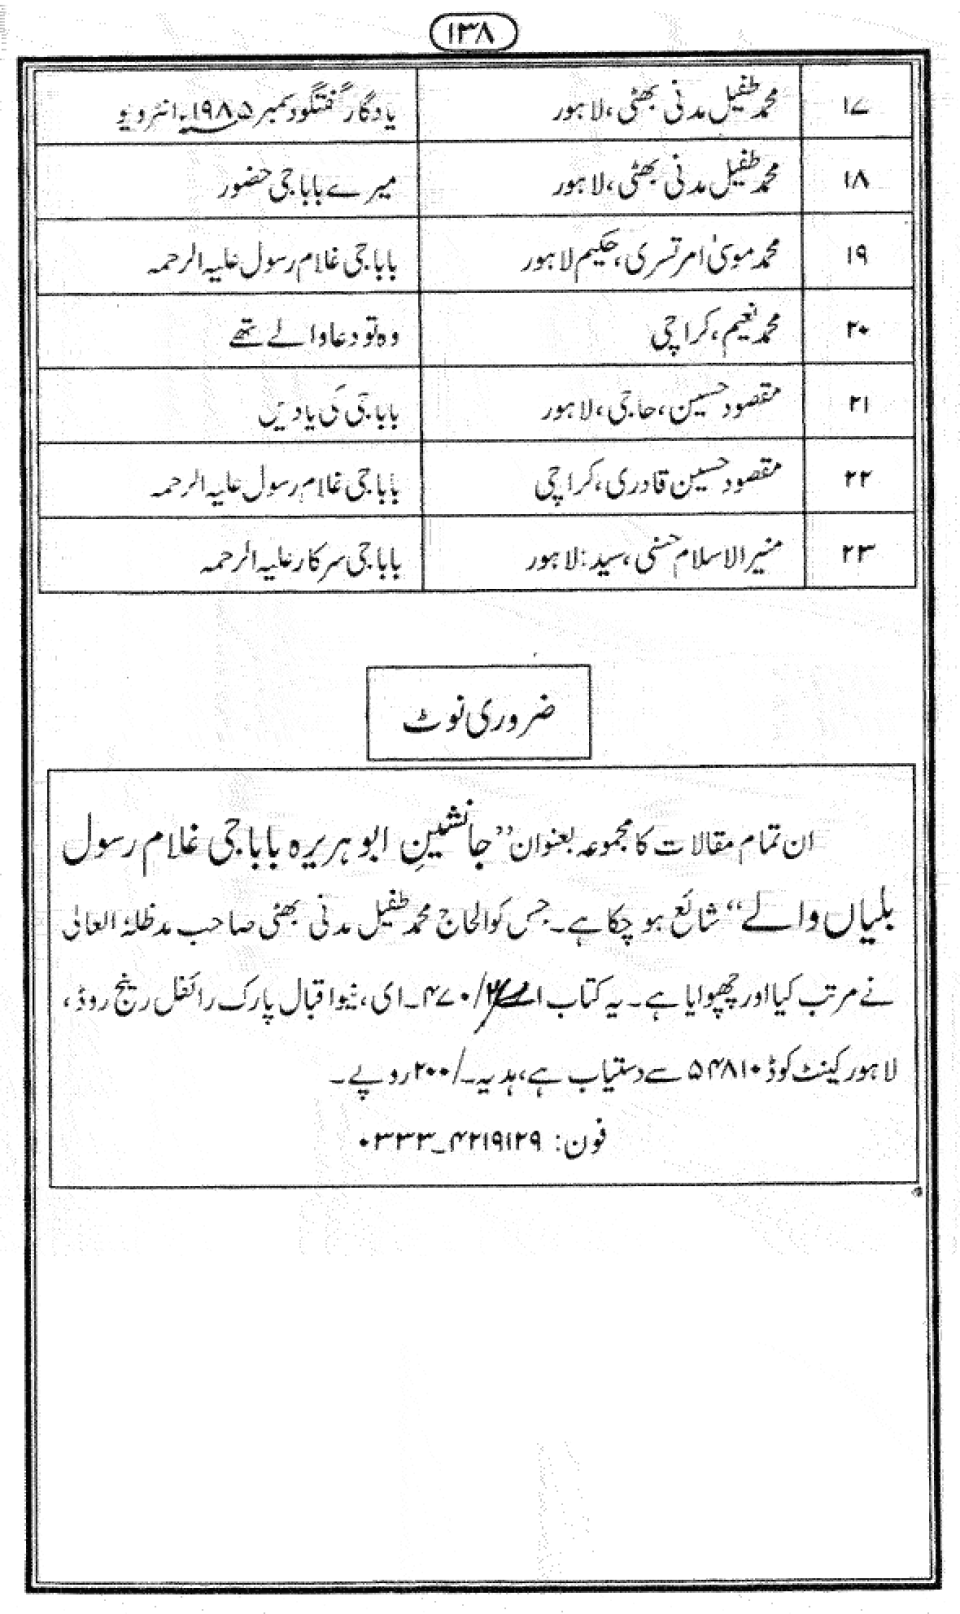 ۱۳۸
۱۷ محمد طفیل مدنی بھٹی، لاہور یادگار گفتگو دسمبر ۱۹۸۵ء، انٹرویو
۱۸ محمد طفیل مدنی بھٹی، لاہور میرے باباجی حضور
۱۹ محمد موسیٰ امرتسری، حکیم لاہور باباجی غلام رسول علیہ الرحمہ
۲۰ محمد نعیم، کراچی وہ تو دعا والے تھے
۲۱ مقصود حسین، حاجی، لاہور باباجی کی یادیں
۲۲ مقصود حسین قادری، کراچی باباجی غلام رسول علیہ الرحمہ
۲۳ منیر الاسلام حسنی، سید: لاہور باباجی سرکار علیہ الرحمہ
ضروری نوٹ
ان تمام مقالات کا مجموعہ بعنوان ’’جانشینِ ابوہریرہ باباجی غلام رسول
بلیاں والے‘‘ شائع ہو چکا ہے۔ جس کو الحاج محمد طفیل مدنی بھٹی صاحب مدظلہٗ العالی
نے مرتب کیا اور چھپوایا ہے۔ یہ کتاب ۴۷۰۔ای، نیو اقبال پارک رائفل رینج روڈ،
لاہور کینٹ کوڈ ۵۴۸۱۰ سے دستیاب ہے، ہدیہ۔/۲۰۰ روپے۔
فون: ۰۳۳۳-۴۲۱۹۱۲۹